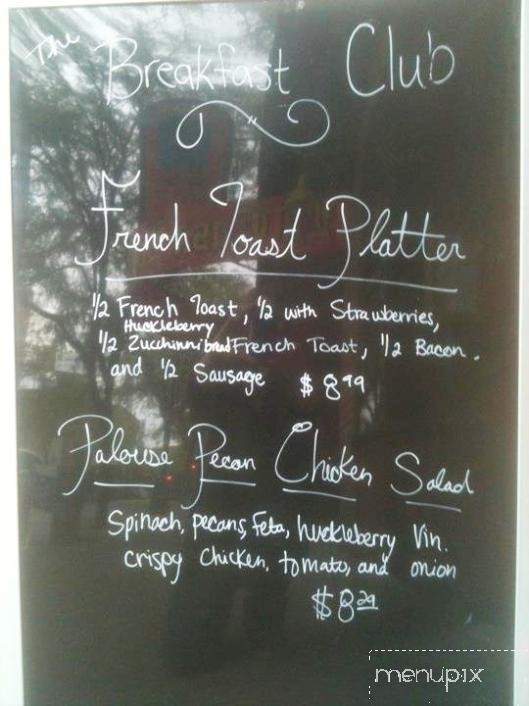 The
Breakfast Club
French Toast Platter
1/2 French Toast, 1/2 with Strawberries,
Huckleberry
1/2 Zucchinni bread French Toast, 1/2 Bacon.
and 1/2 Sausage $8.99
Palouse Pecan Chicken Salad
Spinach, pecans, feta, huckleberry Vin.
crispy chicken, tomato, and onion
$8.29
menupix